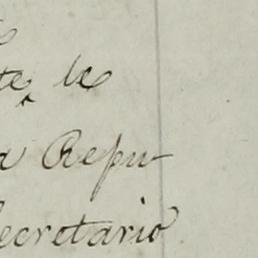 te le
a Repu-
Secretario